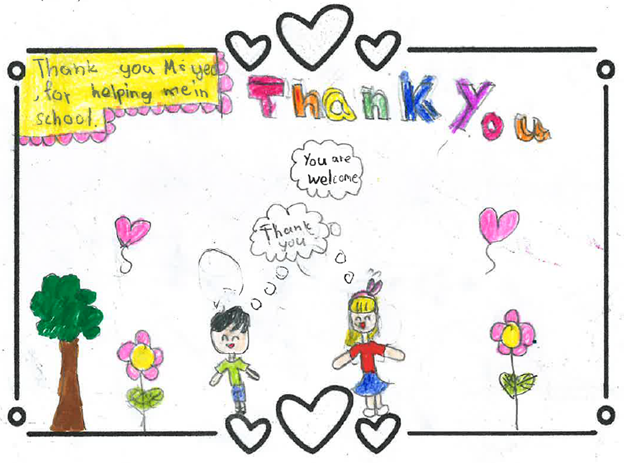 Thank you
, for helping me in
school.
Thank You
You are
welcome
Thank
you